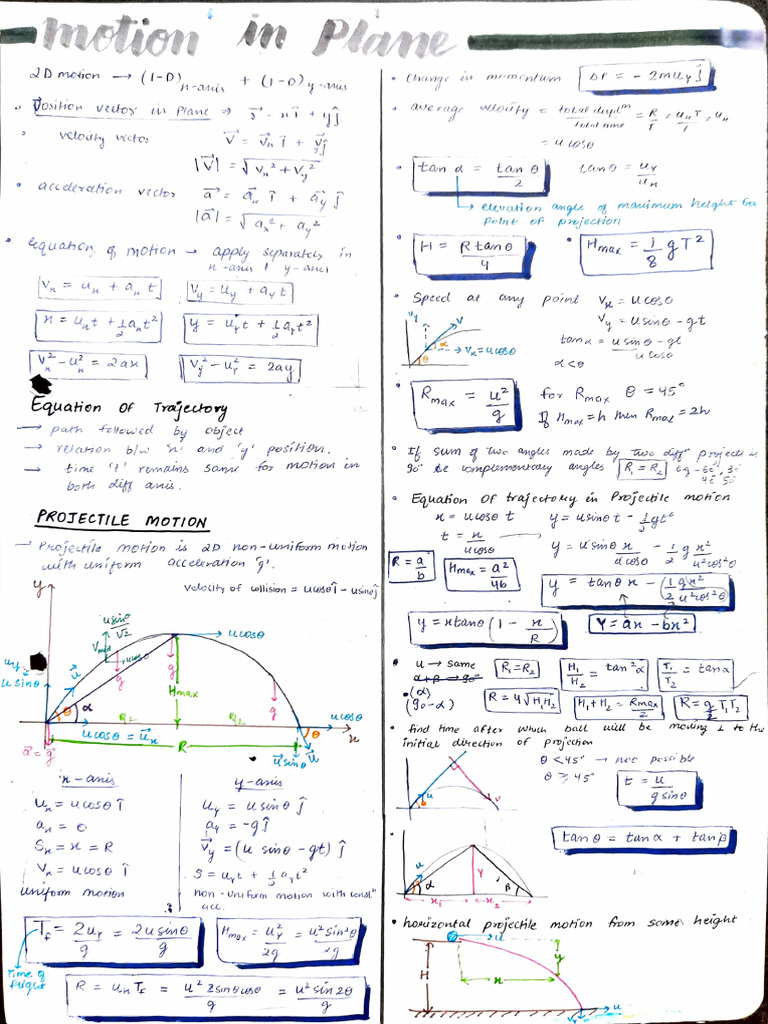 motion in Plane
2D motion → (1-D)x-axis + (1-D)y-axis
Position vector in plane ⇒ r⃗ = xî + yĵ
velocity vector V⃗ = V⃗x î + V⃗y ĵ
|V⃗| = √(Vx² + Vy²)
acceleration vector a⃗ = a⃗x î + a⃗y ĵ
|a⃗| = √(ax² + ay²)
Equation of motion → apply separately in
x-axis & y-axis
Vx = ux + ax t
Vy = uy + ay t
x = uxt + 1/2 axt²
y = uyt + 1/2 ayt²
Vx² - ux² = 2ax
Vy² - uy² = 2ay
Equation Of Trajectory
→ path followed by object
→ relation b/w 'x' and 'y' position.
→ time 't' remains same for motion in
both diff axis.
PROJECTILE MOTION
→ Projectile motion is 2D non-uniform motion
with uniform acceleration 'g'.
velocity of collision = ucosθî - usinθĵ
y
usinθ/√2
Vmid
ucosθ
ucosθ
uy
usinθ
u⃗
g
g
g
Hmax
θ
α
R/2
R/2
ucosθ
x
ucosθ = u⃗x
R
θ
a⃗ = g⃗
u⃗sinθ
u⃗
x-axis
ux = ucosθ î
ax = 0
Sx = x = R
Vx = ucosθ î
uniform motion
y-axis
uy = usinθ ĵ
ay = -gĵ
V⃗y = (u sinθ - gt) ĵ
S = uyt + 1/2 ayt²
non-uniform motion with constⁿ
acc.
Tf = 2uy/g = 2usinθ/g
Hmax = uy²/2g = u²sin²θ/2g
Time of
flight
R = ux Tf = u² 2sinθcosθ/g = u² sin2θ/g
change in momentum ΔP = - 2muy ĵ
average velocity = total displⁿ/total time = R/T = uxT/T = ux
= ucosθ
tan α = tan θ/2
tanθ = uy/ux
elevation angle of maximum height for
point of projection
H = R tanθ/4
Hmax = 1/8 gT²
Speed at any point Vx = ucosθ
Vy = usinθ - gt
tanα = usinθ - gt/ucosθ
α<θ
vy
V
α
θ
Vx = ucosθ
Rmax = u²/g
for Rmax θ = 45°
If Hmax = h then Rmax = 2h
If sum of two angles made by two diffⁿ projectiles is
90° ie complementary angles R1 = R2
Equation Of trajectory in Projectile motion
x = ucosθ t
y = usinθt - 1/2 gt²
t = x/ucosθ
y = usinθ x/ucosθ - 1/2 g x²/u²cos²θ
R = a/b
Hmax = a²/4b
y = tanθ x - (1/2 gx²/u²cos²θ)
y = xtanθ (1 - x/R)
Y = ax - bx²
u → same
(α)
(90-α)
R1 = R2
H1/H2 = tan²α
T1/T2 = tanα
R = 4√H1H2
H1 + H2 = Rmax/2
R = g/2 T1T2
find time after which ball will be moving ⊥ to the
initial direction of projection
θ < 45° → not possible
θ ≥ 45°
t = u/gsinθ
u
v
tanθ = tanα + tanβ
u
α
Y
β
x1
x2
horizontal projectile motion from some height
u
H
x
y
u